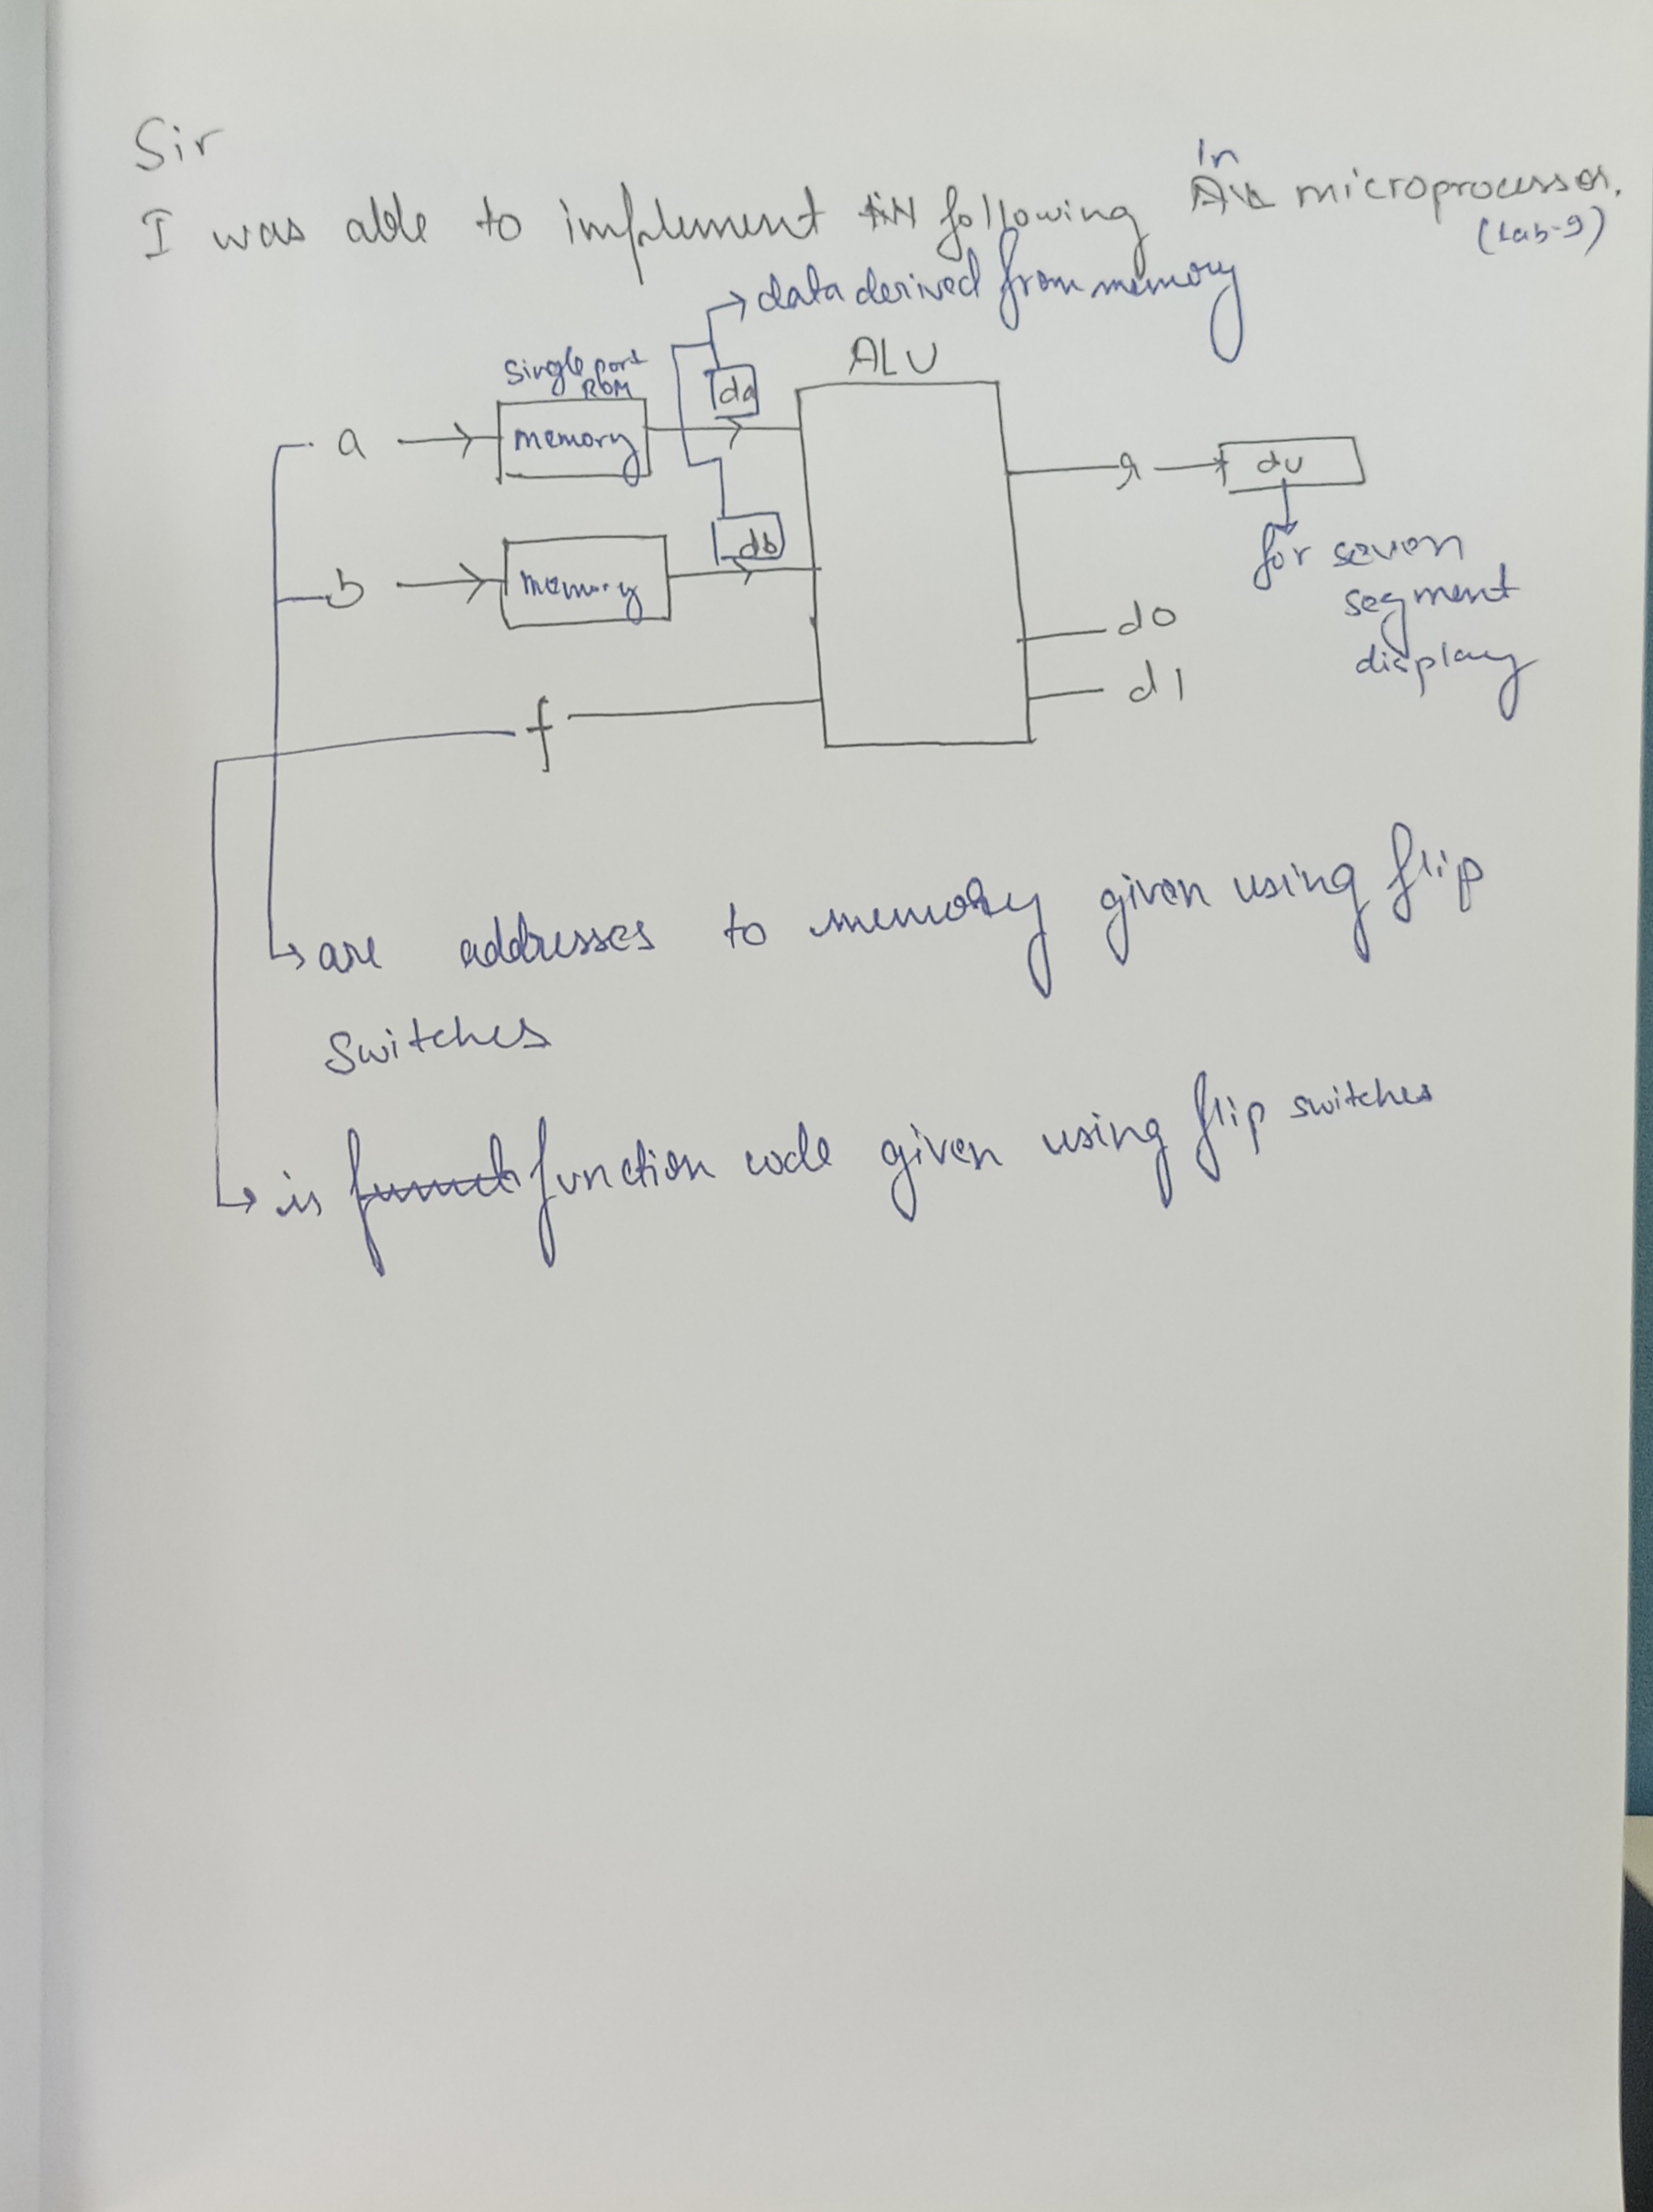 Sir
In
I was able to implement following microprocessor.
(Lab-9)
data derived from memory
ALU
Single port
ROM
da
a
memory
r
du
db
b
memory
for seven
segment
display
d0
d1
f
are addresses to memory given using flip
switches
is function code given using flip switches